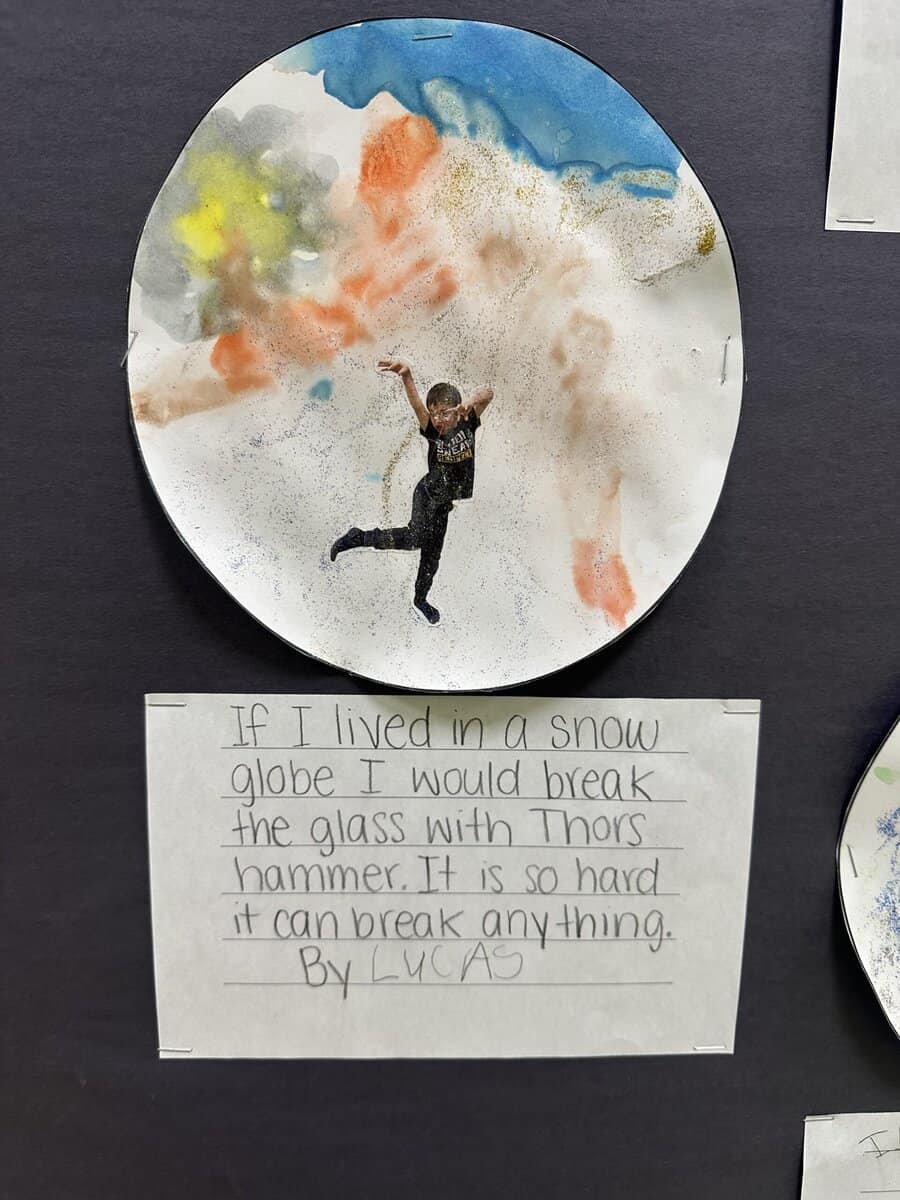 If I lived in a snow
globe I would break
the glass with Thors
hammer. It is so hard
it can break anything.
By LUCAS